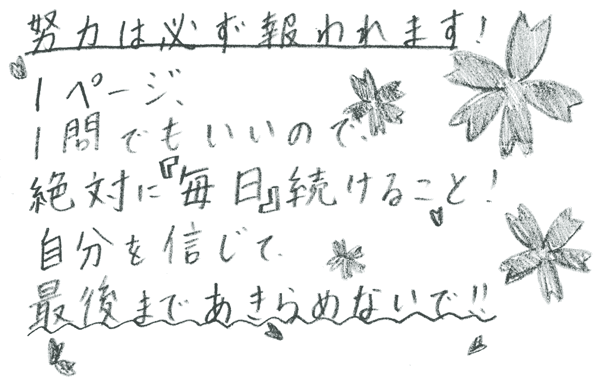 努力は必ず報われます!
1ページ、
1問でもいいので、
絶対に『毎日』続けること!
自分を信じて、
最後まであきらめないで!!